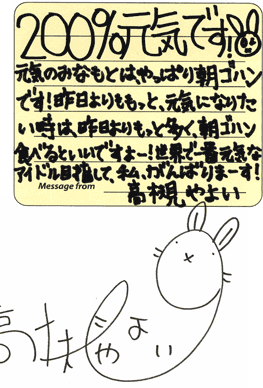 200%元気です!
元気のみなもとは、やっぱり朝ゴハン
です!昨日よりももっと、元気になりた
い時は、昨日よりもっと多く、朝ゴハン
食べるといいですよー!世界で一番元気な
アイドル目指して、私、がんばりまーす!
Message from
高槻 やよい
高槻やよい